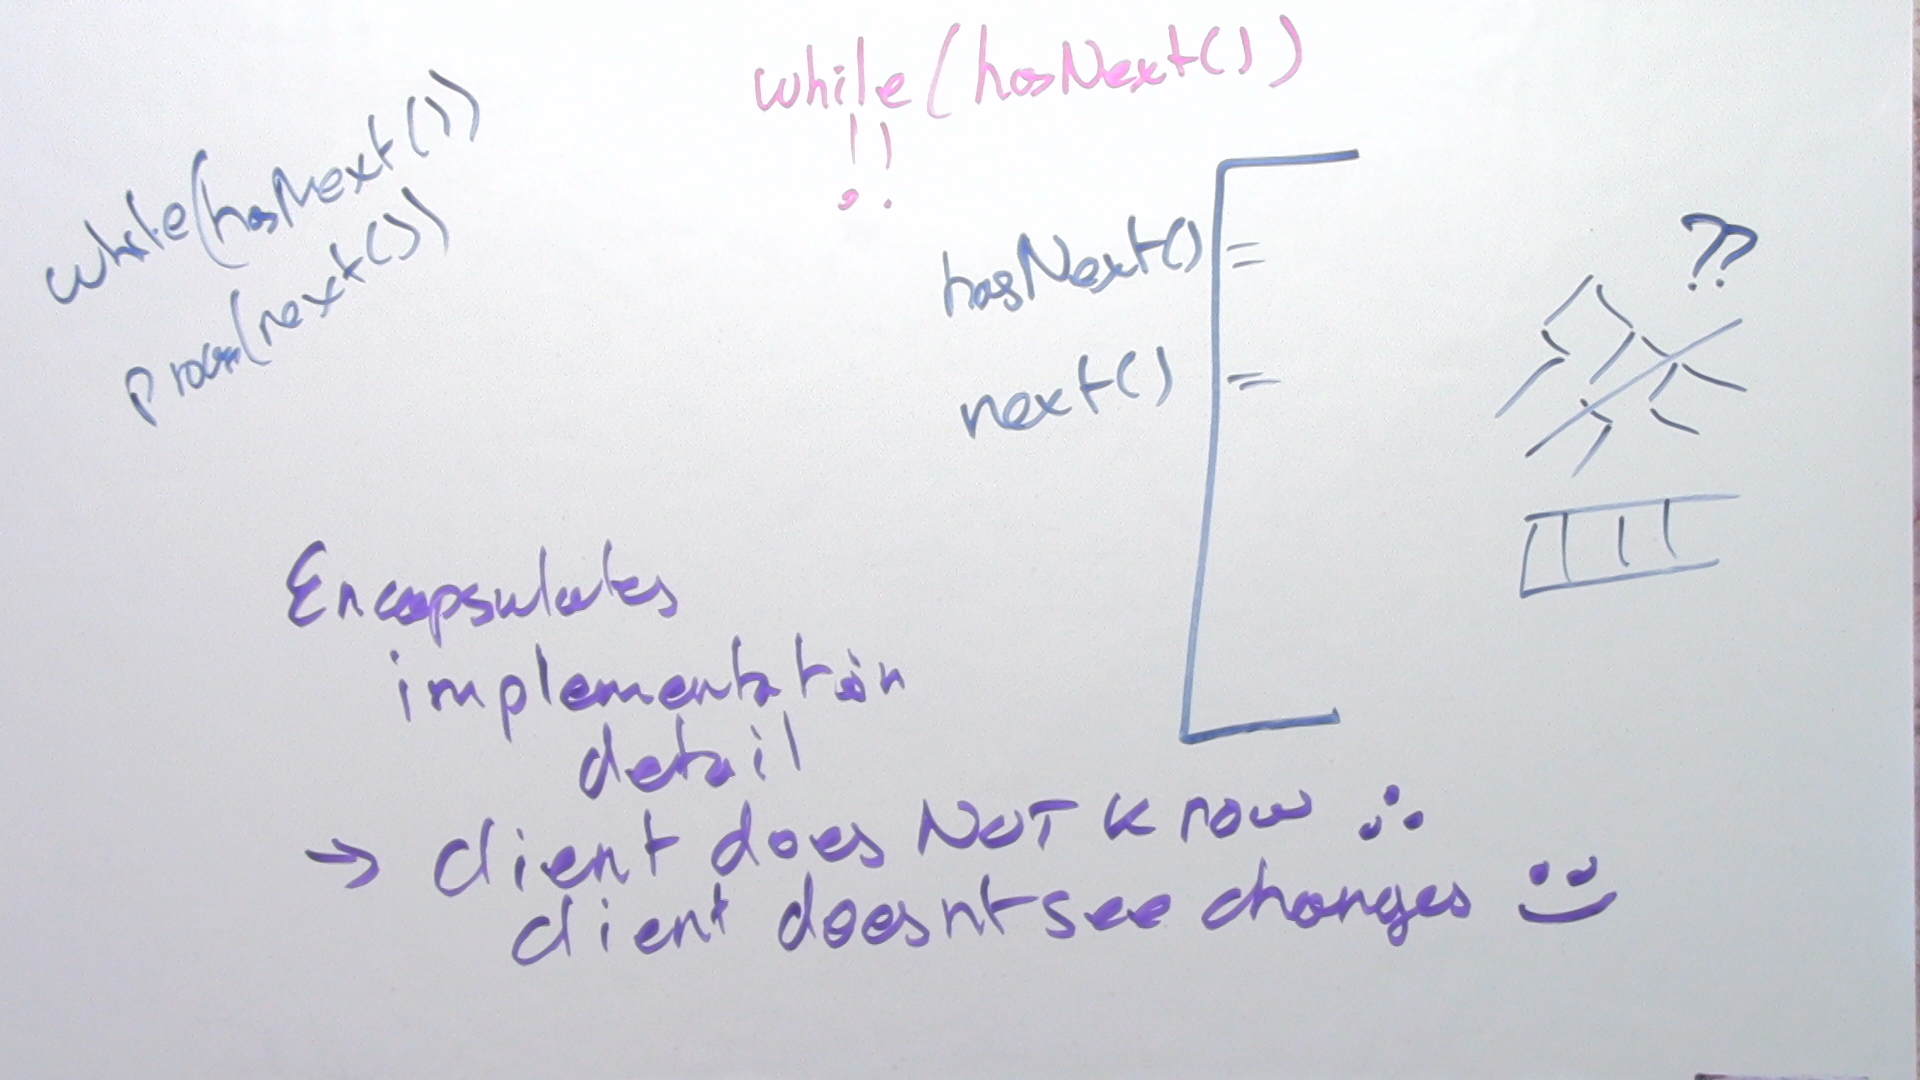 while(hasNext())
!!
while(hasNext())
(next())
hasNext() =
next() =
??
Encapsulates
implementation
detail
→ client does NOT know ∴
client doesnt see changes